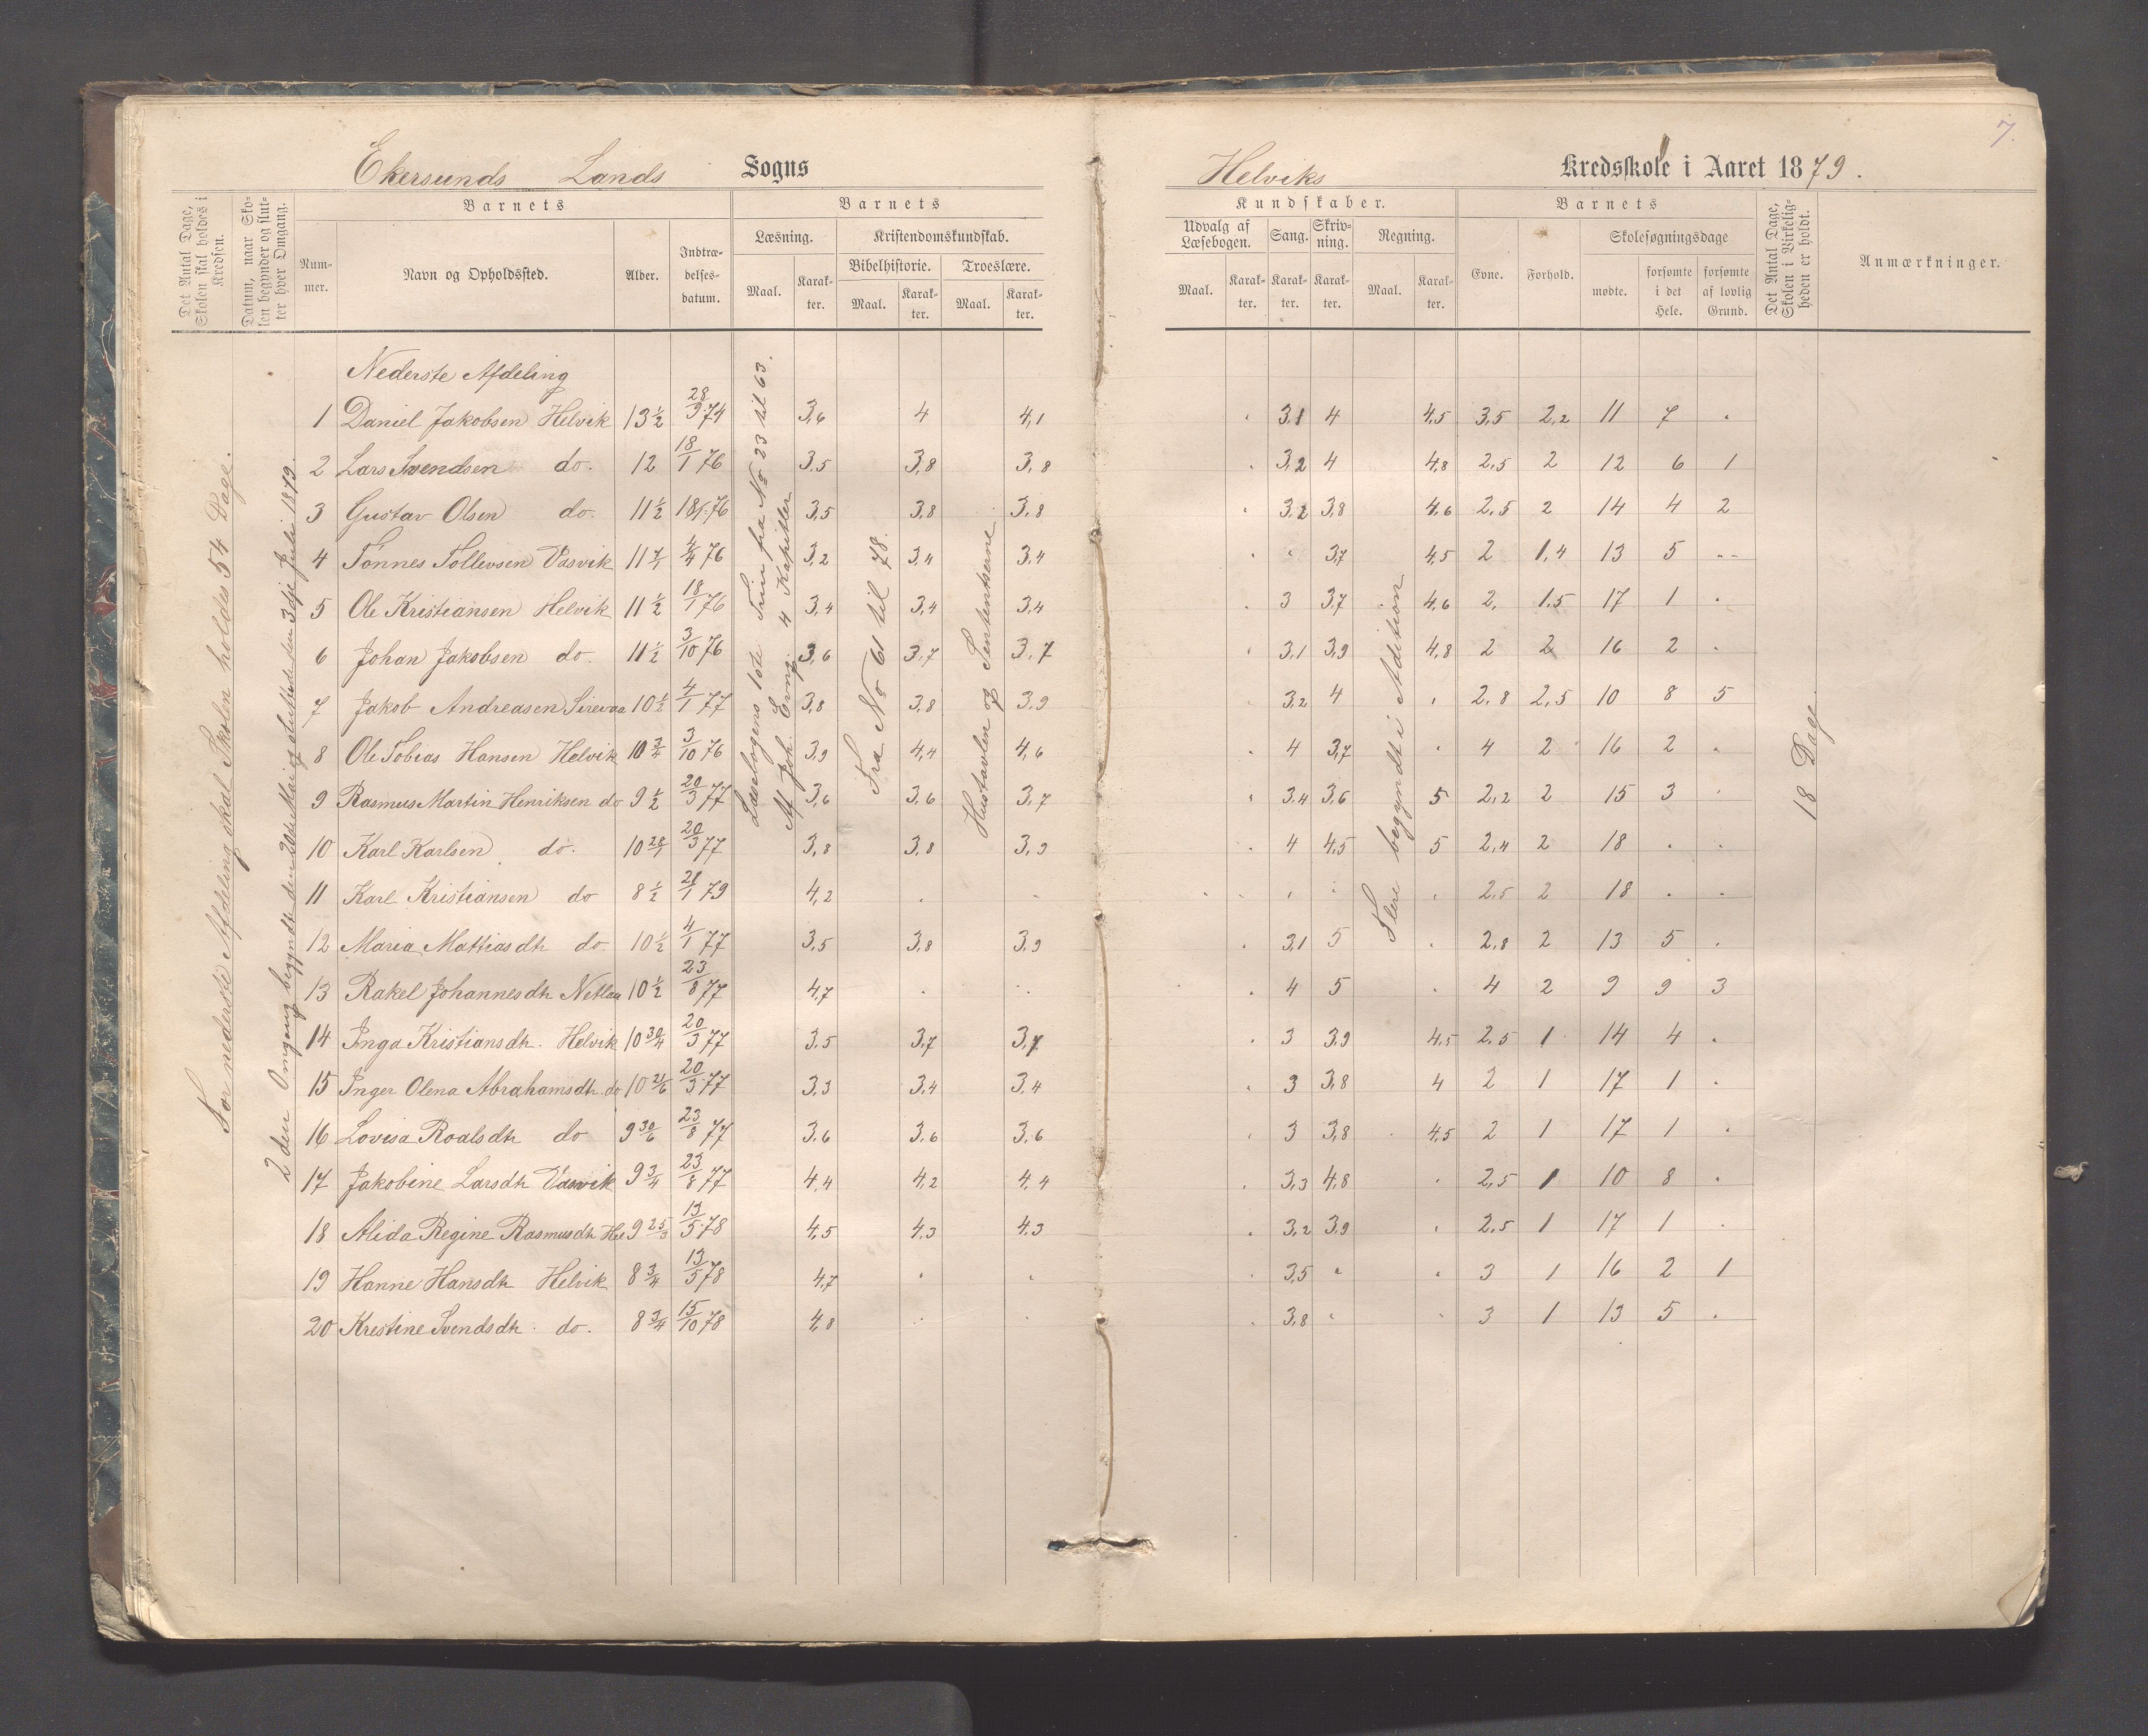 7.
Ekersunds Lands Sogns
Helviks Kredsskole i Aaret 1879.
Det Antal Dage, Skolen skal holdes i Kredsen.
Datum, naar Skolen begynder og slutter hver Omgang.
Barnets
Nummer.
Navn og Opholdssted.
Alder.
Indtrædelsesdatum.
Barnets
Læsning.
Maal.
Karakter.
Kristendomskundskab.
Bibelhistorie.
Maal.
Karakter.
Troeslære.
Maal.
Karakter.
Kundskaber.
Udvalg af Læsebogen.
Maal.
Karakter.
Sang.
Karakter.
Skrivning.
Karakter.
Regning.
Maal.
Karakter.
Barnets
Evne.
Forhold.
Skolesøgningsdage
mødte.
forsømte i det Hele.
forsømte af lovlig Grund.
Det Antal Dage, Skolen i Virkeligheden er holdt.
Anmærkninger.
For nederste Afdeling skal Skolen holdes 54 Dage.
2den Omgang begyndte den 20de Mai og sluttede den 3die Juli 1879.
Læsebogens 1ste Trin fra No 23 til 63.
Af Joh. Evang. 4 Kapitler
Fra No 61 til 78.
Hustavlen og Sententserne
Flere begyndt i Adition
18 Dage
Nederste Afdeling
1 Daniel Jakobsen Helvik 13 1/2 28/9 74 3,6 4 4,1 3,1 4 4,5 3,5 2,2 11 7 .
2 Lars Svendsen do. 12 18/1 76 3,5 3,8 3,8 3,2 4 4,8 2,5 2 12 6 1
3 Gustav Olsen do. 11 1/2 18/1 76 3,5 3,8 3,8 3,2 3,8 4,6 2,5 2 14 4 2
4 Tønnes Tollevsen Vasvik 11 4/4 76 3,2 3,4 3,4 3,7 4,5 2 1,4 13 5
5 Ole Kristiansen Helvik 11 1/2 18/1 76 3,4 3,4 3,4 3 3,7 4,6 2, 1,5 17 1 .
6 Johan Jakobsen do. 11 1/2 3/10 76 3,6 3,7 3,7 3,1 3,9 4,8 2 2 16 2 .
7 Jakob Andreasen Sirevaa 10 1/2 4/1 77 3,8 3,8 3,9 3,2 4 2,8 2,5 10 8 5
8 Ole Tobias Hansen Helvik 10 3/4 3/10 76 3,9 4,4 4,6 4 3,7 4 2 16 2 .
9 Rasmus Martin Henriksen do 9 1/2 20/3 77 3,6 3,6 3,7 3,4 3,6 5 2,2 2 15 3 .
10 Karl Karlsen do. 10 20/3 77 3,8 3,8 3,9 4 4,5 5 2,4 2 18 . .
11 Karl Kristiansen do 8 1/2 21/1 79 4,2 . . 2,5 2 18 . .
12 Maria Mattiasdt do 10 1/2 4/1 77 3,5 3,8 3,9 3,1 5 2,8 2 13 5 .
13 Rakel Johannesdt 10 1/2 23/8 77 4,7 . . 4 5 4 2 9 9 3
14 Inga Kristiansdt. Helvik 10 30/4 20/3 77 3,5 3,7 3,7 3 3,9 4,5 2,5 1 14 4 .
15 Inger Olena Abrahamsdt. do 10 21/6 20/3 77 3,3 3,4 3,4 3 3,8 4 2 1 17 1 .
16 Lovisa Roalsdt do 9 30/6 23/8 77 3,6 3,6 3,6 3 3,8 4,5 2 1 17 1 .
17 Jakobine Larsdt Vasvik 9 3/4 23/8 77 4,4 4,2 4,4 3,3 4,8 2,5 1 10 8 .
18 Alida Regine Rasmusdt Hel 9 25/3 13/5 78 4,5 4,3 4,3 3,2 3,9 2,5 1 17 1 .
19 Hanne Hansdt Helvik 8 3/4 13/5 78 4,7 . . 3,5 3 1 16 2 1
20 Kristine Svendsdt. do. 8 3/4 15/10 78 4,8 . . 3,8 3 1 13 5 .